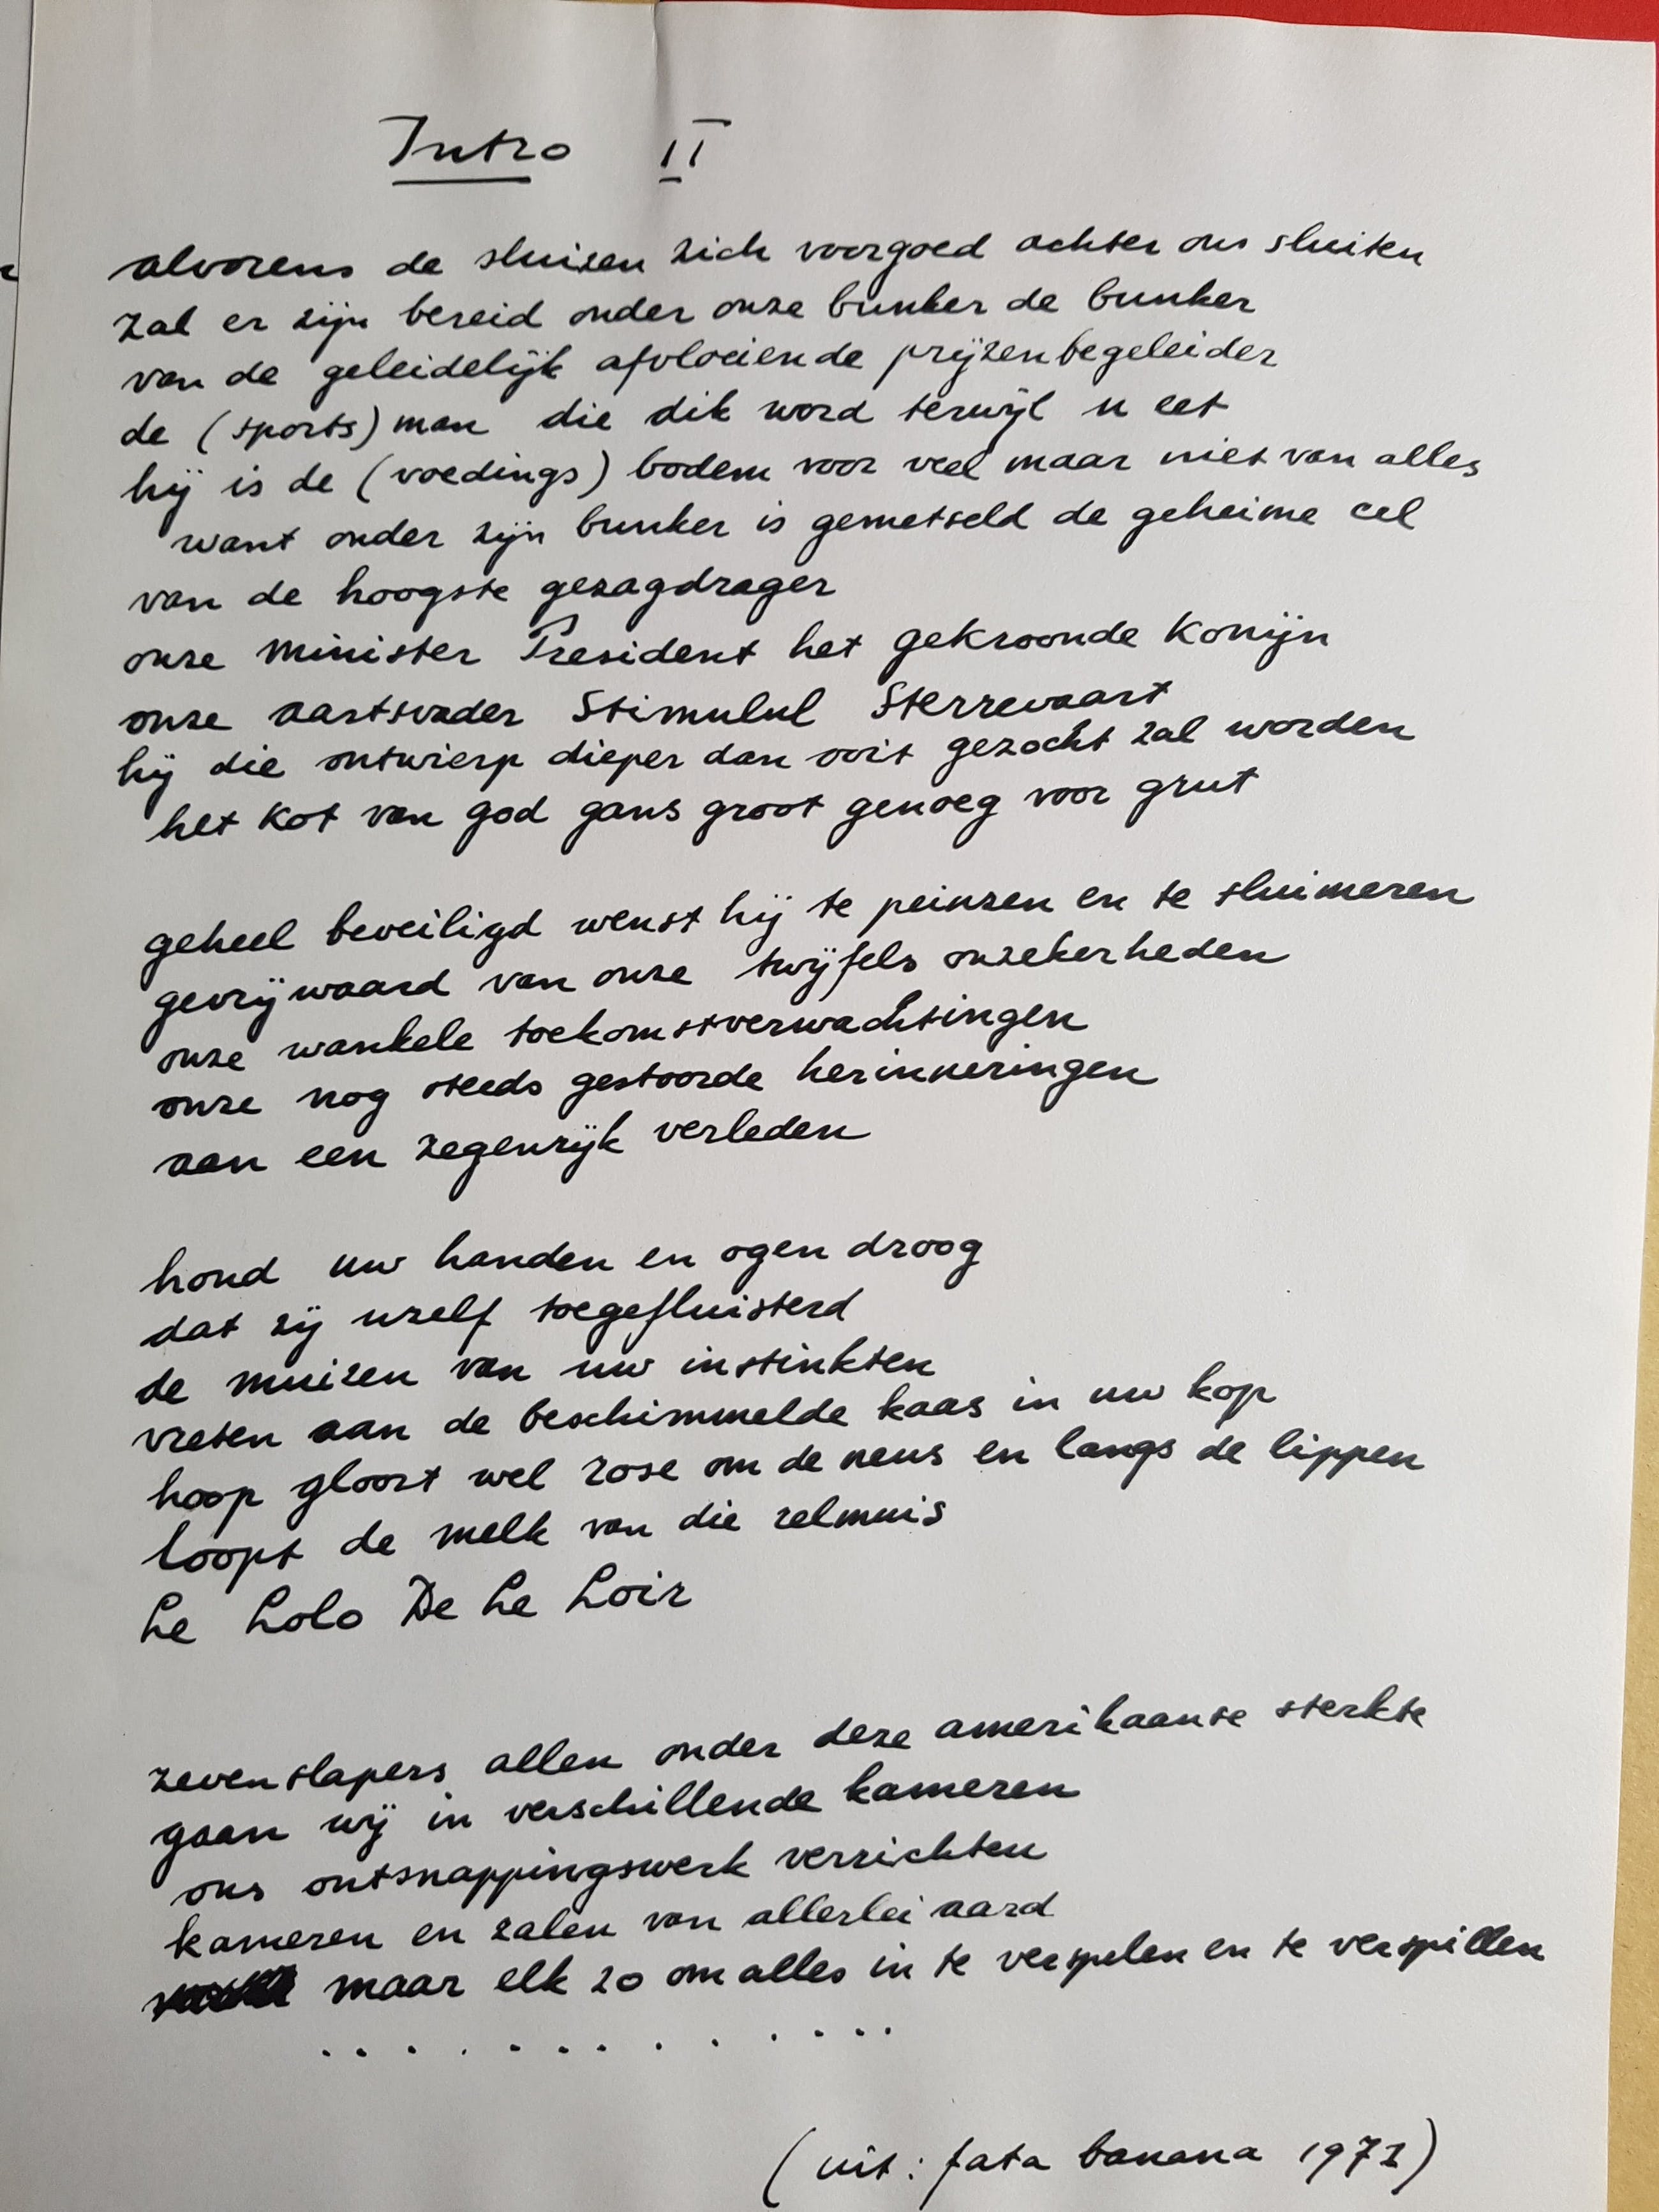 Intro II
alvorens de sluizen zich voorgoed achter ons sluiten
zal er zijn bereid onder onze bunker de bunker
van de geleidelijk afvloeiende prijzenbegeleider
de (sports) man die dik word terwijl u eet
hij is de (voedings) bodem voor veel maar niet van alles
want onder zijn bunker is gemetseld de geheime cel
van de hoogste gezagdrager
onze minister President het gekroonde konijn
onze aartsvader Stimulul Sterrevaart
hij die ontwierp dieper dan ooit gezocht zal worden
het kot van god gans groot genoeg voor grut
geheel beveiligd wenst hij te peinzen en te sluimeren
gevrijwaard van onze twijfels onzekerheden
onze wankele toekomstverwachtingen
onze nog steeds gestoorde herinneringen
aan een zegenrijk verleden
houd uw handen en ogen droog
dat zij uzelf toegefluisterd
de muizen van uw instinkten
vreten aan de beschimmelde kaas in uw kop
hoop gloort wel rose om de neus en langs de lippen
loopt de melk van die relmuis
Le Lolo De Le Loir
zevenslapers allen onder deze amerikaanse sterkte
gaan wij in verschillende kameren
ons ontsnappingswerk verrichten
kameren en zalen van allerlei aard
maar elk zo om alles in te verspelen en te verspillen
. . . . . . . . . . . . .
(uit: fata banana 197 )